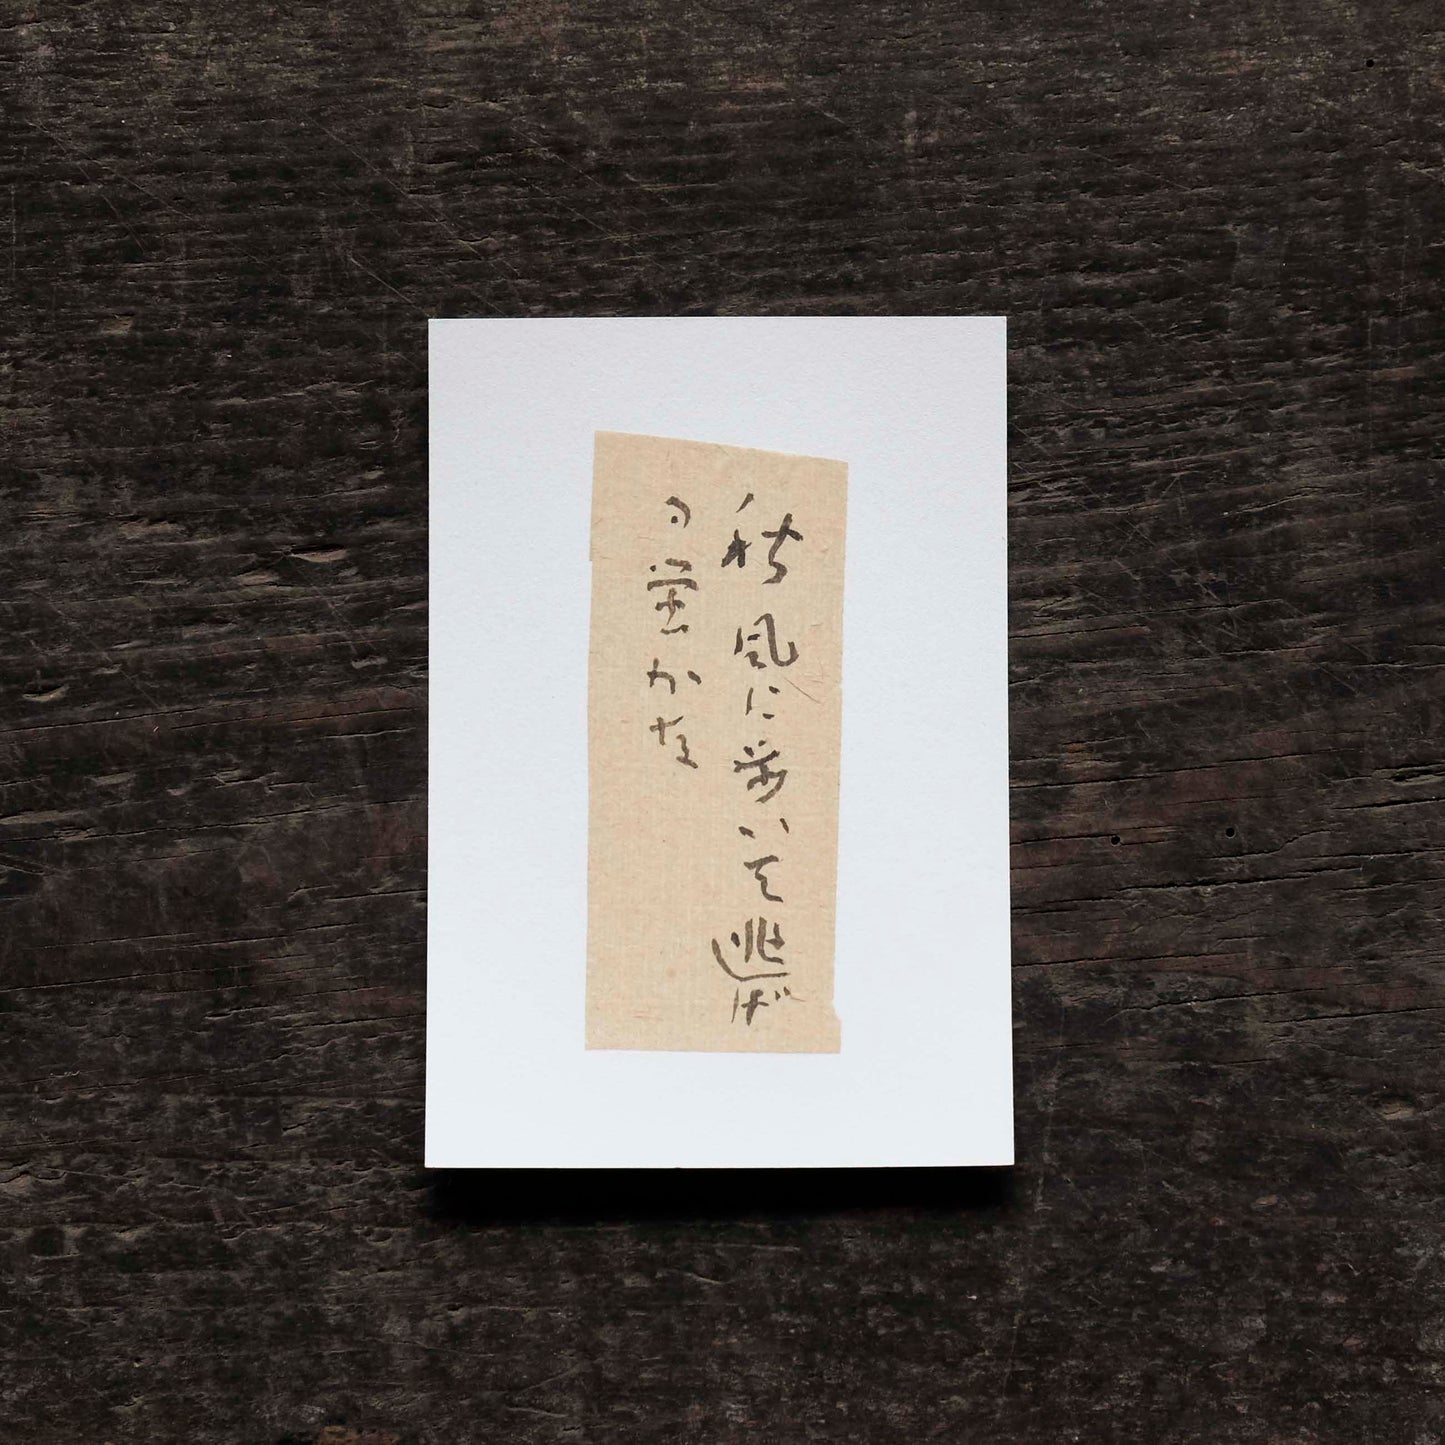 秋風に歩いて逃げ
る蛍かな